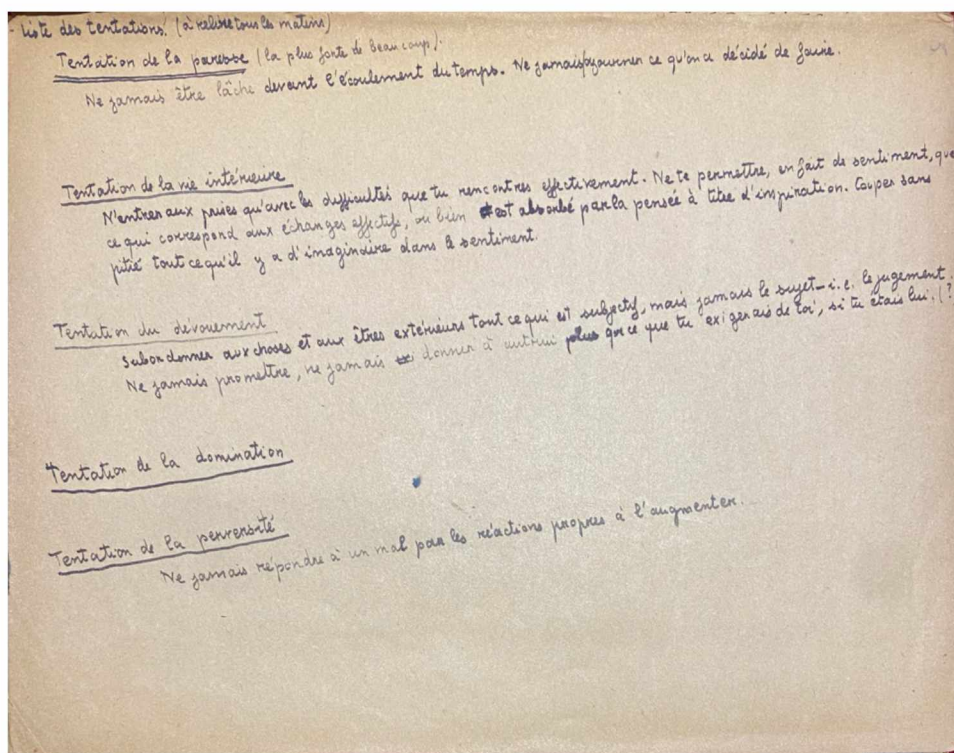 - Liste des tentations. (à relire tous les matins)
Tentation de la paresse (la plus forte de beaucoup).
Ne jamais être lâche devant l'écoulement du temps. Ne jamais ajourner ce qu'on a décidé de faire.
Tentation de la vie intérieure
N'entrer aux prises qu'avec les difficultés que tu rencontres effectivement. Ne te permettre, en fait de sentiment, que
ce qui correspond aux échanges effectifs, ou bien est absorbé par la pensée à titre d'inspiration. Couper sans
pitié tout ce qu'il y a d'imaginaire dans le sentiment.
Tentation du dévouement
Subordonner aux choses et aux êtres extérieurs tout ce qui est subjectif, mais jamais le sujet – i.e. le jugement.
Ne jamais promettre, ne jamais donner à autrui plus que ce que tu exigerais de toi, si tu étais lui. (?
Tentation de la domination
Tentation de la perversité
Ne jamais répondre à un mal par les réactions propres à l'augmenter.